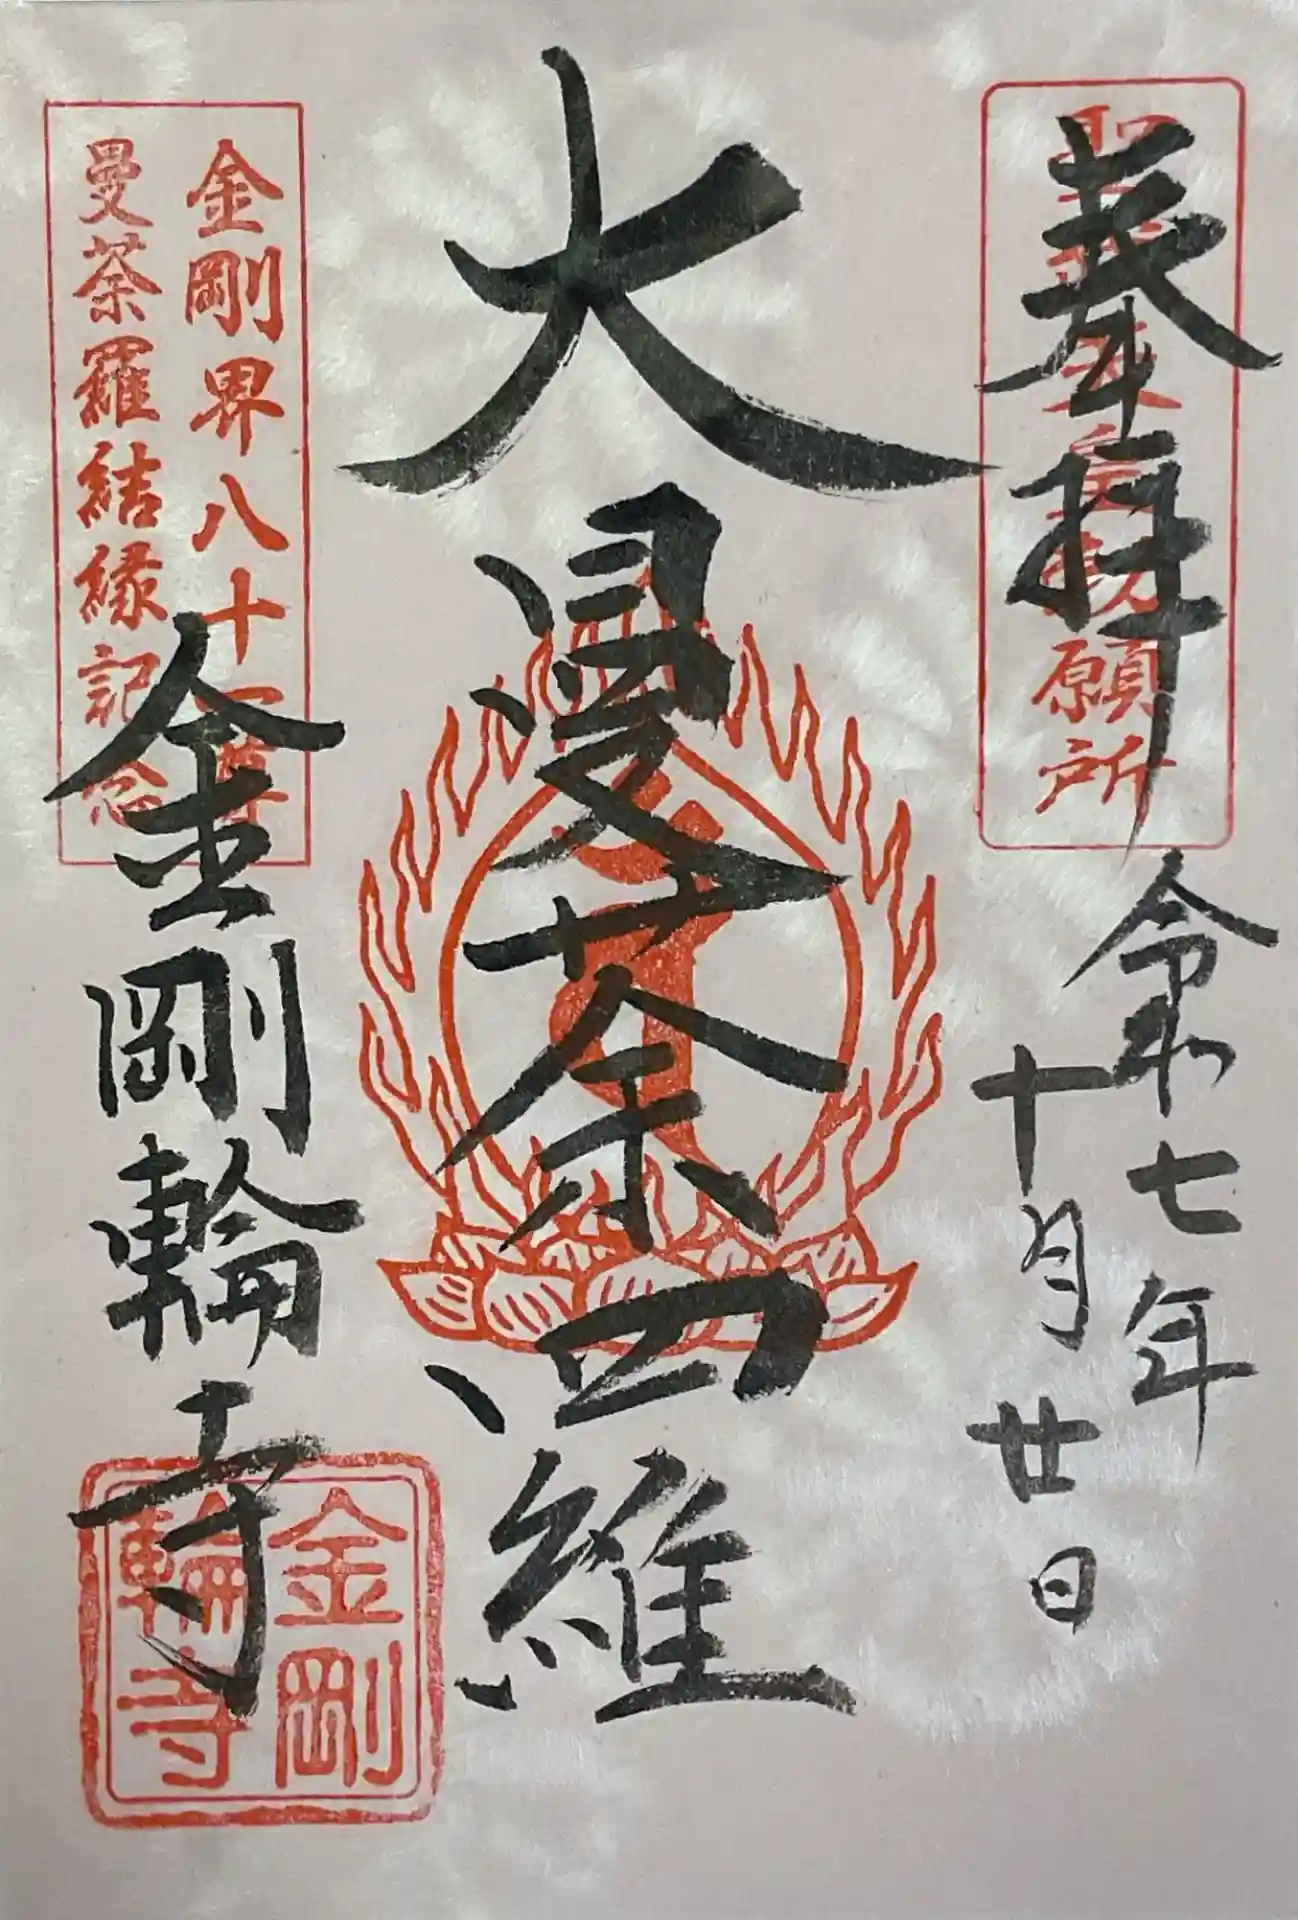 奉拝
聖武天皇勅願所
令和七年
十月廿日
大曼荼羅
金剛界八十一尊
曼荼羅結縁記念
金剛輪寺
金剛
輪寺